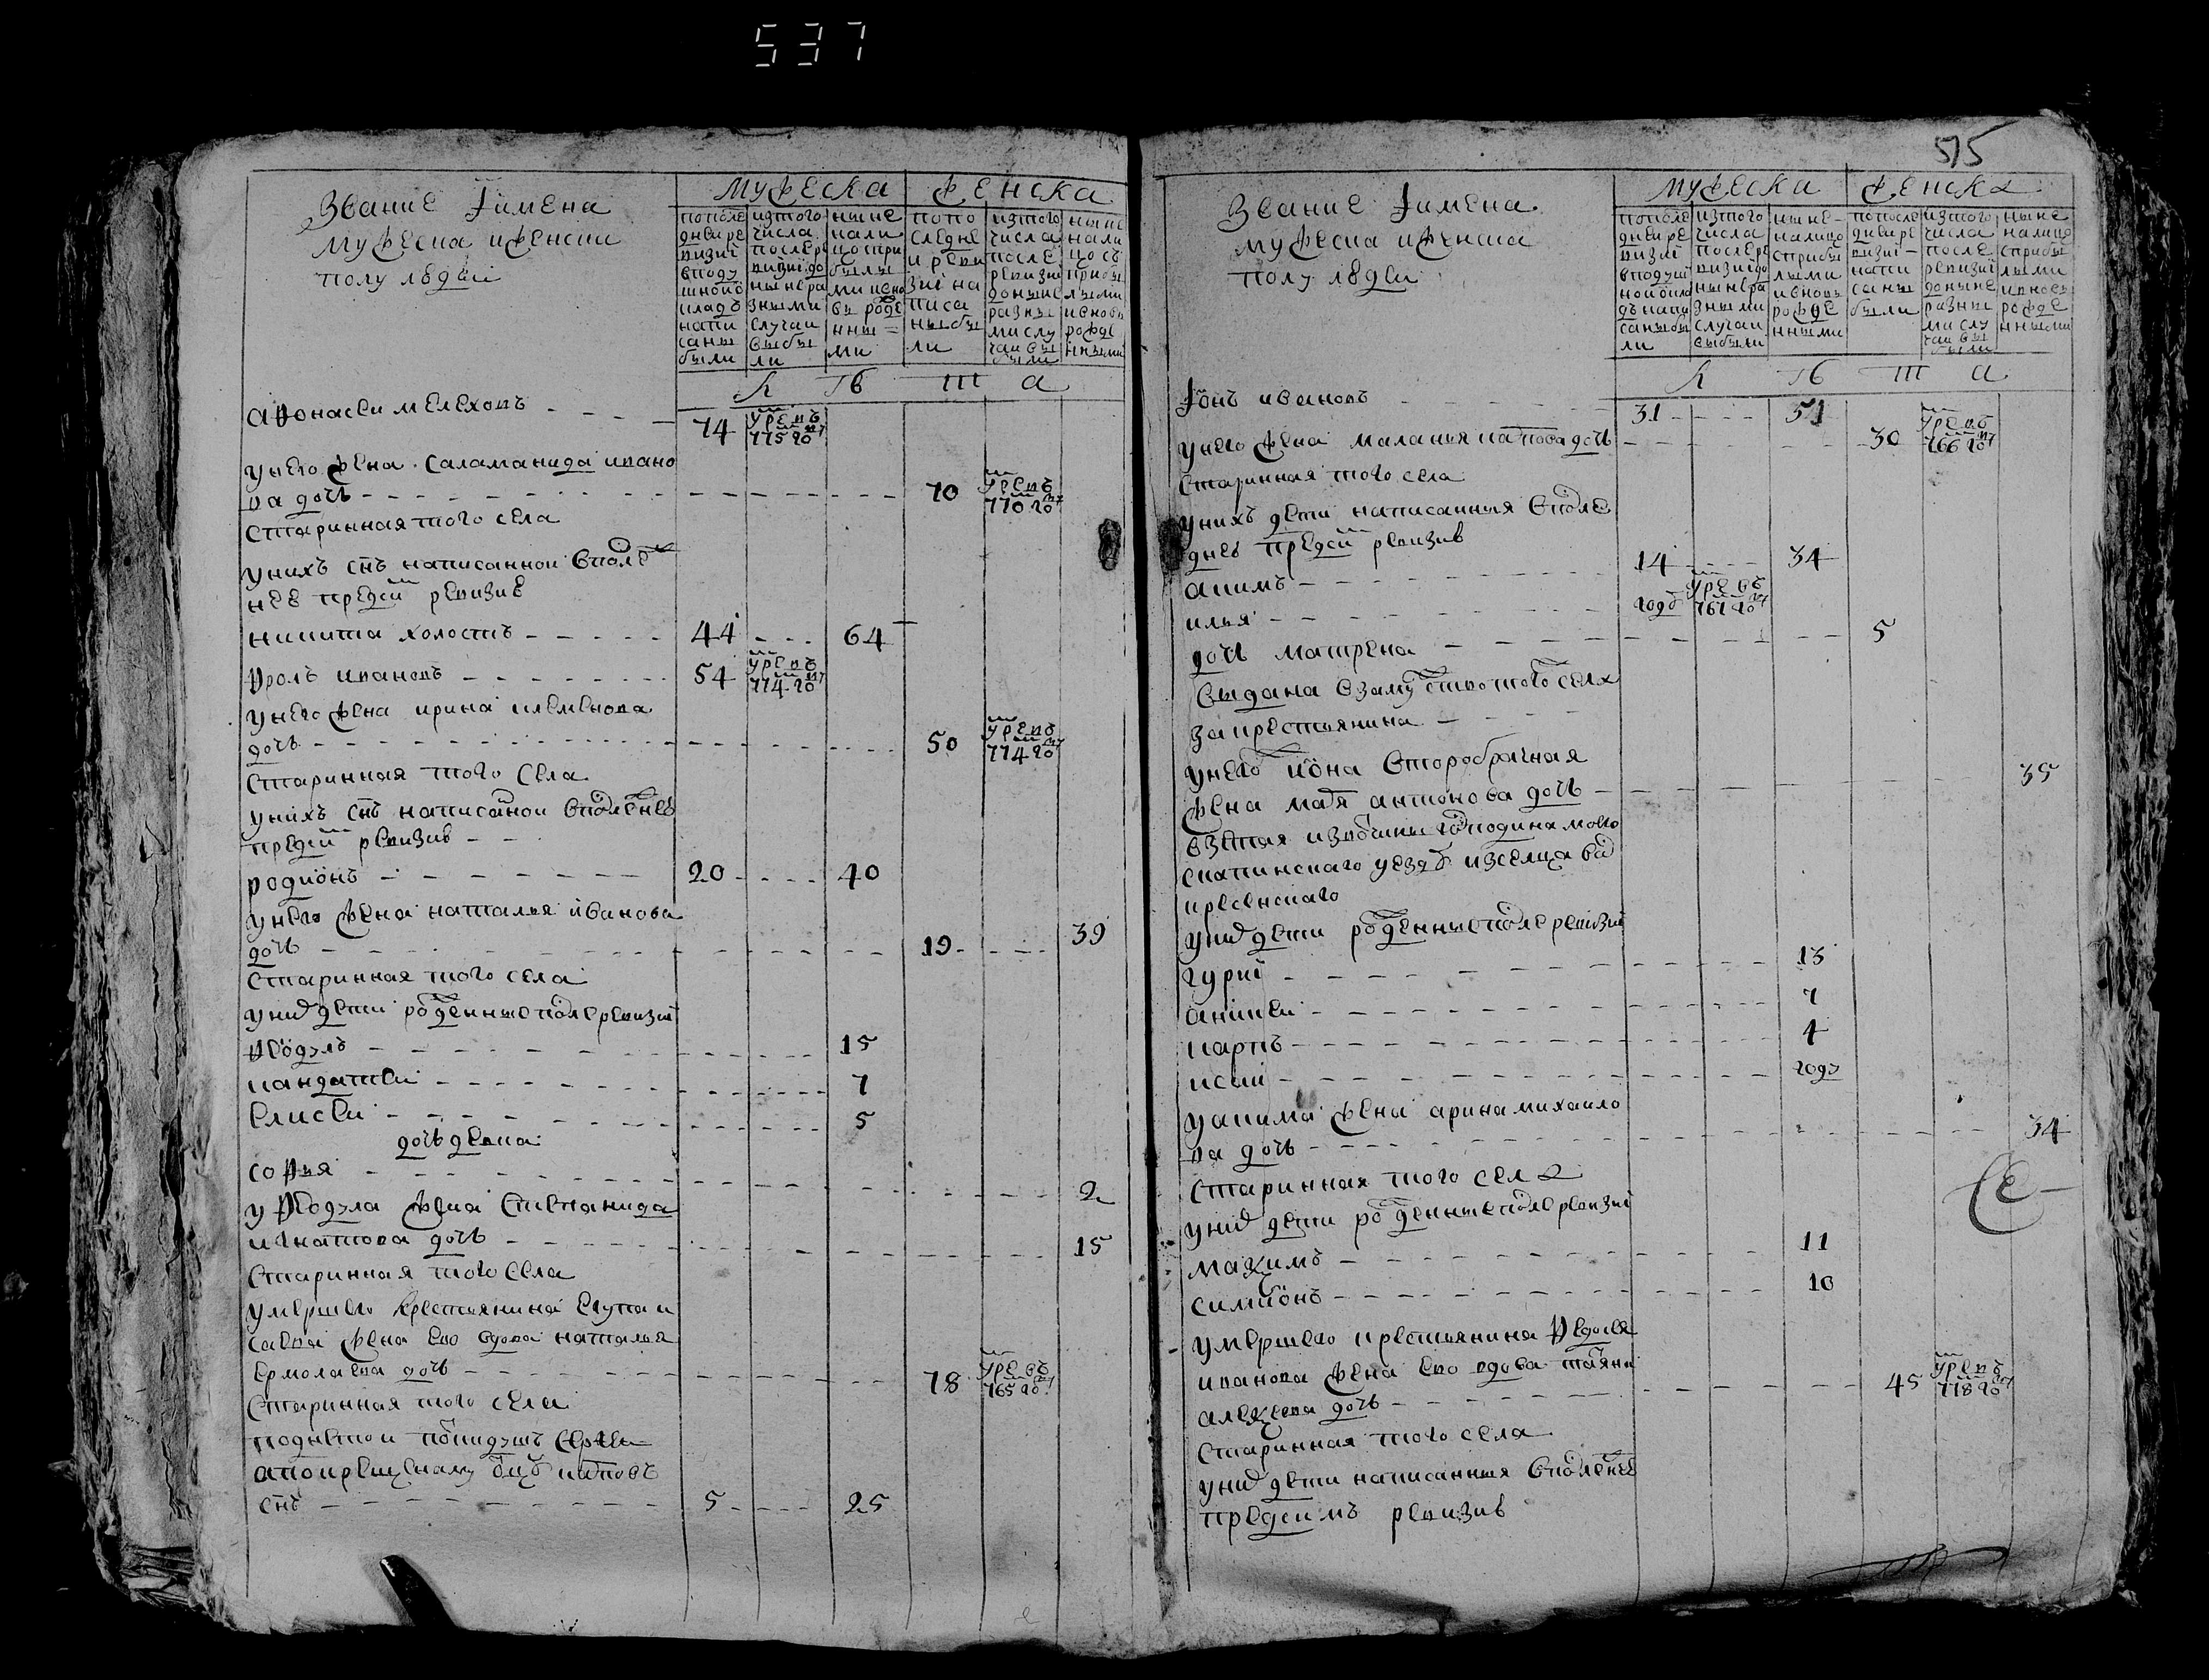 537
Звание Iимена
мужеска иженски
полу людеи
мужеска
женска
пополе
дневре
визиi
вподу
шнойо
кладъ
напи
саны
были
изтого
числа
послѣр
визиiдо
ныневра
зными
случаи
выбы
ли
ныне
нали
цопри
былы
ми ивно
въ рожде
нны
ми
попо
следне
и реви
зиi на
писа
ныбы
ли
изтого
числа
после
ревизиi
доныне
разны
ми слу
чаи вы
были
ныне
нали
цо съ
прибы
лыми
ивновь
рожде
нными
л тв ш а
афонасеи мелеховъ
74
умрѣ въ
775 го^д
унего жена саламанида ивано
ва дочь
70
умрѣ въ
770 го^д
стариннаятого села
унихъ снъ написаннои впосле
нев предеи ревизие
никита холостъ 44 64
фролъ ивановъ 54
умрѣ въ
774 го^д
унего жена ирина клеменова
дочь
50
умрѣ въ
774 го^д
старинная того села
унихъ снъ написанои впоследнев
предеи ревизие
родионъ 20 40
унего жена наталья иванова
дочь 19 39
старинная того села
унихъ дети рожденныепослеревизиi
федулъ 15
кандатеи 7
елисеи 5
дочь девка
софья 2
у федула жена степанида
игнатова дочь 15
старинная того села
умершего крестьянина евупаи
савва жена ево вдова наталья
ермолаева дочь 78
умрѣ въ
765 го^д
старинная того села
поднетои покидушъ сергеи
апокрещеному отцу карповъ
снъ 5 25
515
Звание Iимена
мужеска иженска
полу людеи
мужеска
женска
пополе
дневре
визиi
вподуш
нойокла
дънапи
саныбы
ли
изтого
числа
послѣре
визиiдо
ныневра
зными
случаи
выбыли
ныне
налицо
сприбы
лыми
ивновь
рожде
нными
попосле
дневре
визиi
напи
саны
были
изтого
числа
после
ревизиi
доныне
разны
ми слу
чаи вы
были
ныне
налицо
сприбы
лыми
ивновь
рожде
нными
л тв ш а
Iонъ ивановъ 31 51
унего жена маланья карпова дочь 30
умрѣ въ
766 го^д
старинная того села
унихъ дети написанныя впосле
днев предеи ревизие
акимъ 14 34
илья году
умрѣ въ
767 го^д
дочь матрена 5
выдана взамужствотого села
закрестьянина
унего иона второбрачная
жена марья антонова дочь 35
взятая извотчины господина моего
скопинскаго уезду изселца вос
кресенскаго
унихъ дети рожденныепослеревизиi
гурий 13
аникеи 7
карпъ 4
исай году
уакима жена арина михаило
ва дочь 34
старинная того села
унихъ дети рожденныепослеревизиi
максимъ 11
симионъ 10
умершего крестьянина федосея
иванова жена ево вдова татяна
алексеева дочь 45
умрѣ въ
778 го^д
старинная того села
унихъ дети написанныя впоследнев
предеимъ ревизие